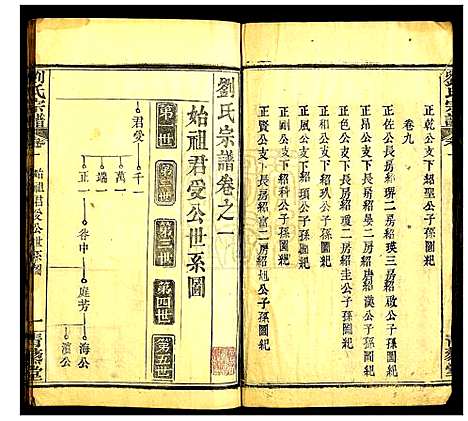 正乾公支下紹聖公子孫圖紀
卷九
正賢公支下長房紹琾二房紹瑛三房紹啟公子孫圖紀
正昂公支下長房紹晏二房紹唐紹漢公子孫圖紀
正色公支下長房紹政二房紹圭公子孫圖紀
正風公支下紹玖公子孫圖紀
正陽公支下紹頊公子孫圖紀
正岡公支下紹科公子孫圖紀
正賢公支下長房紹富二房紹旭公子孫圖紀
劉氏宗譜卷之一
始祖君愛公世系圖
第一世
第二世
第三世
第四世
第五世
君愛
千一
萬一
端一
正一
谷中
庭芳
海公
濱公
劉氏宗譜
卷一
始祖君愛公世系圖
一
青藜堂